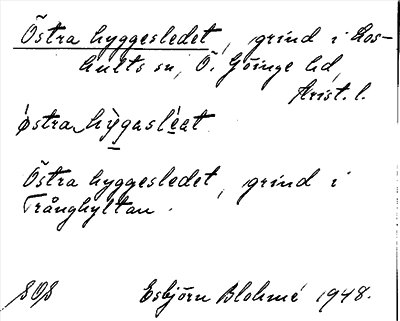 Östra hyggesledet, grind i Los-
hults sn, Ö. Göinge hd,
Krist. l.
östra hygasleat
Östra hyggesledet, grind i
Trånghyltan.
SOS Esbjörn Blohmé 1948.